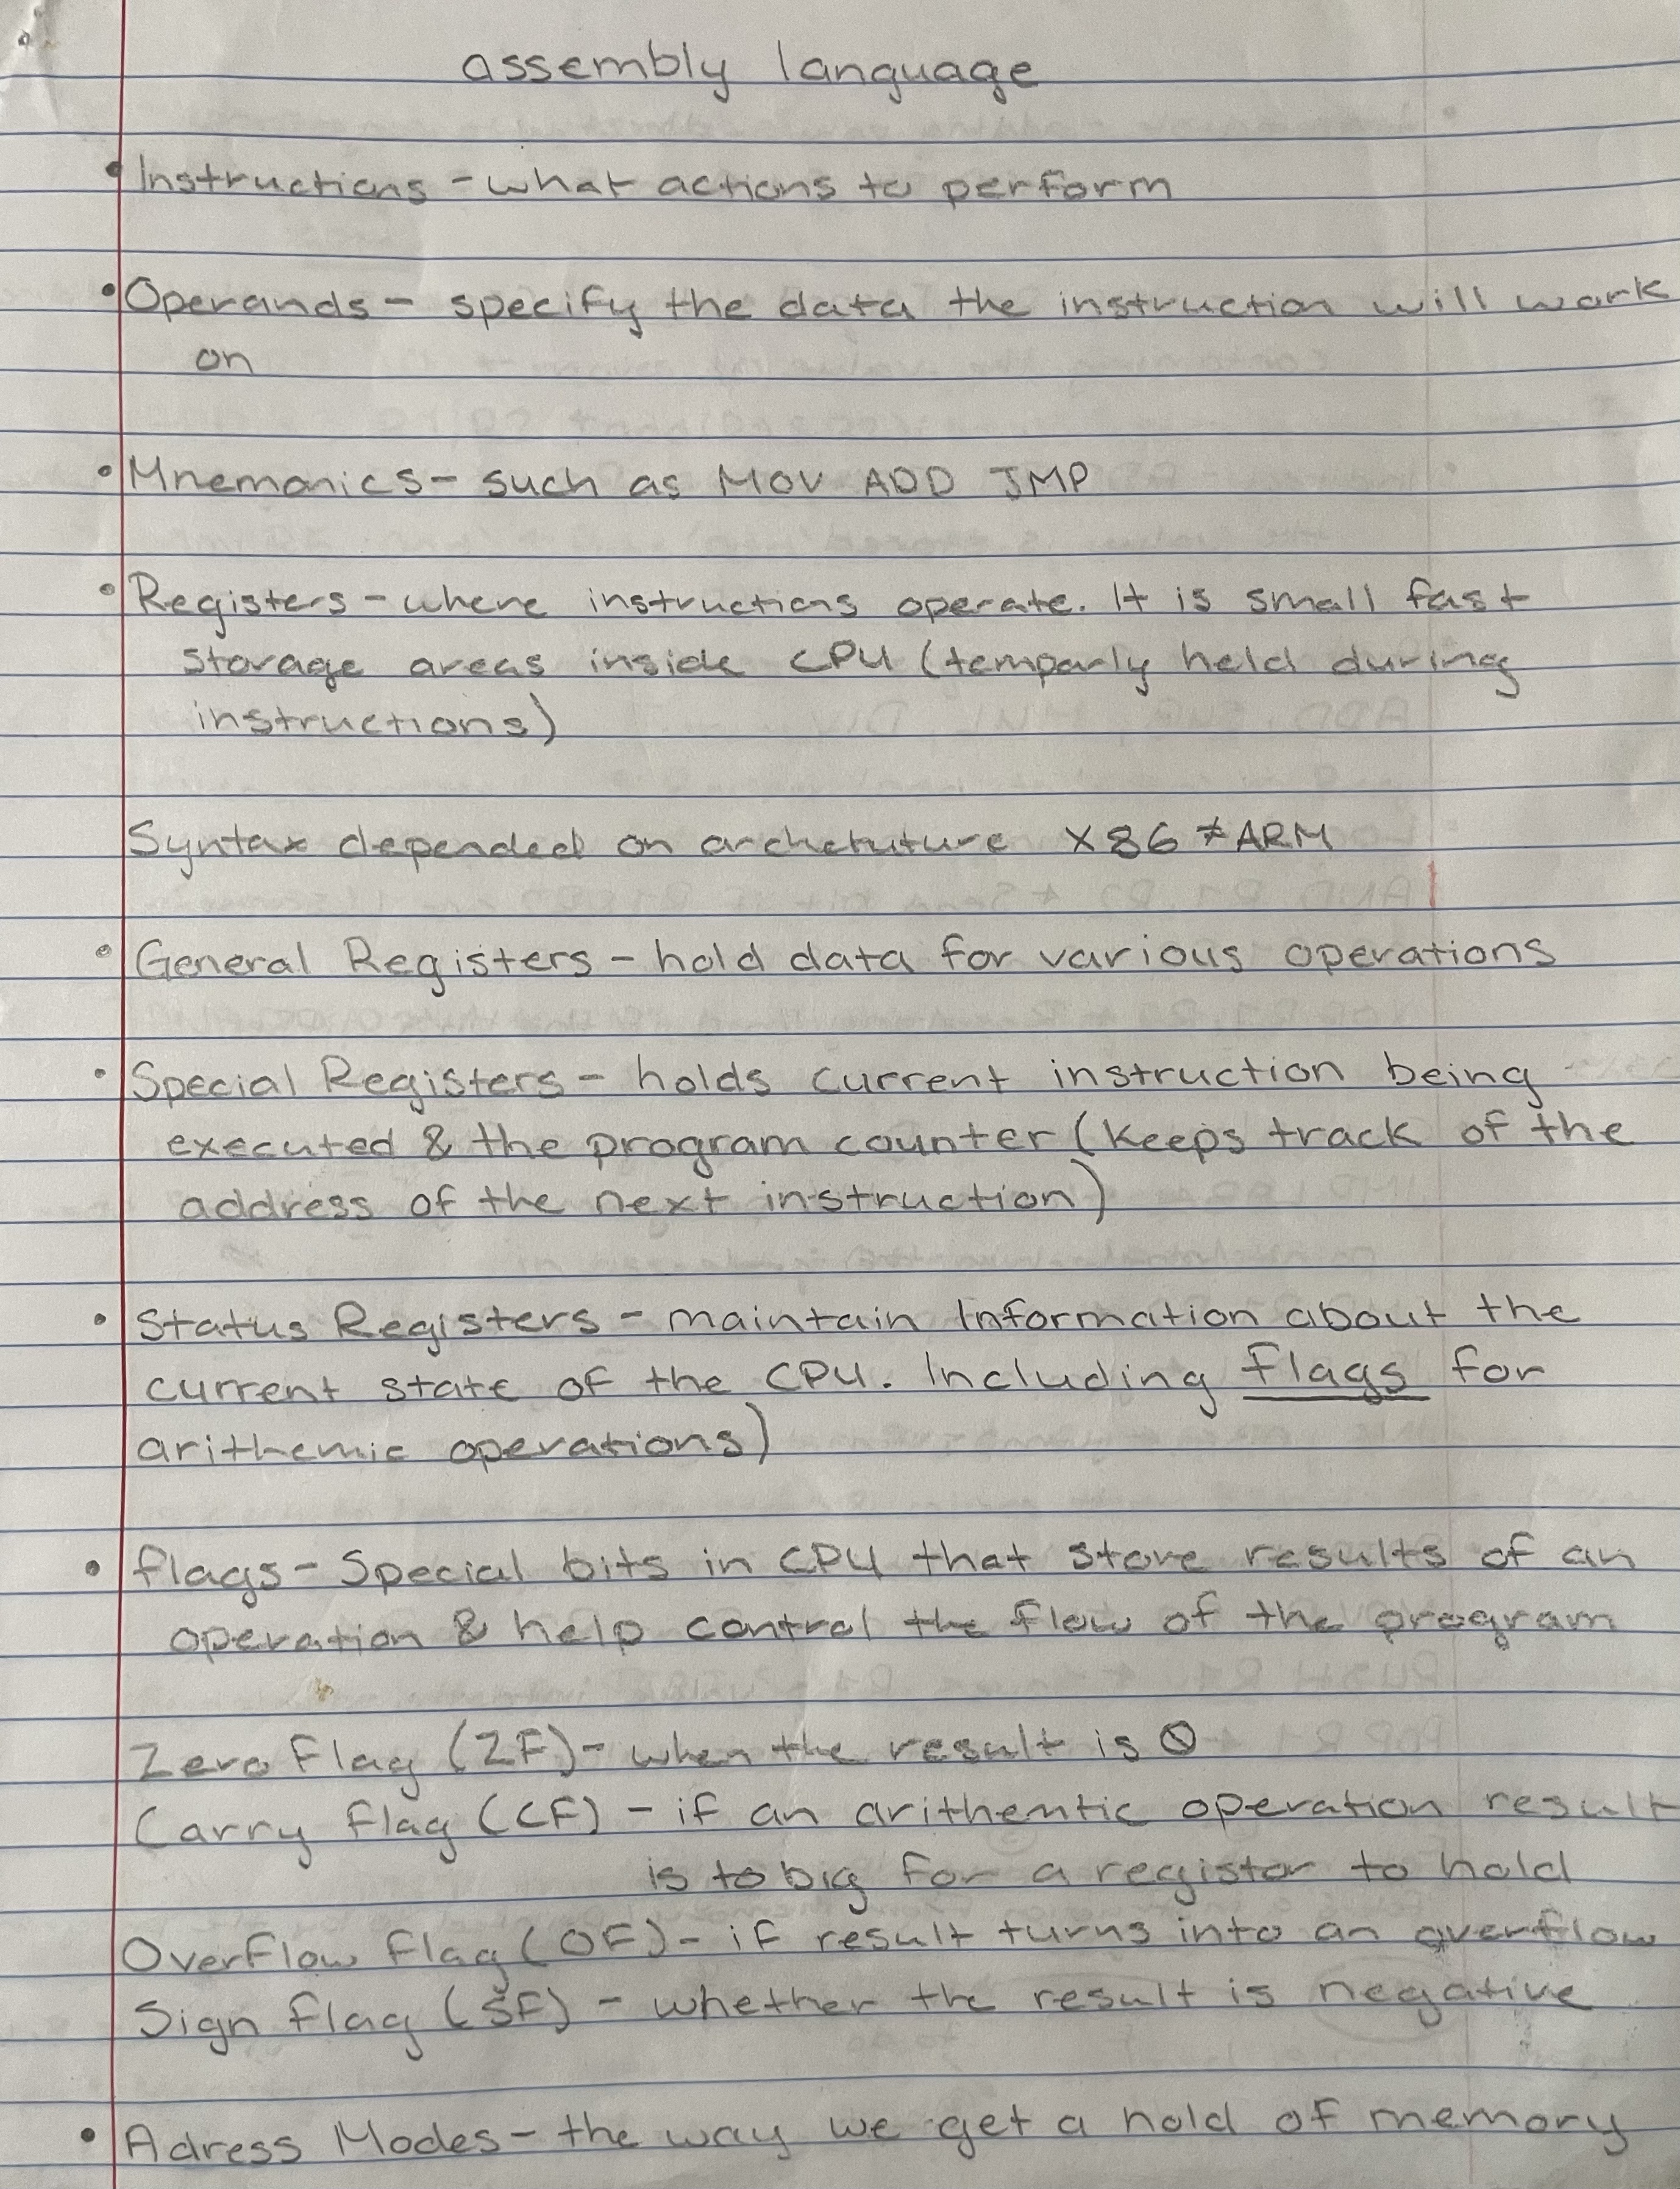 assembly language
• Instructions - what actions to perform
• Operands - specify the data the instruction will work
on
• Mnemonics - such as MOV ADD JMP
• Registers - where instructions operate. It is small fast
storage areas inside CPU (temparly held during
instructions)
Syntax depended on archetuture X86 ≠ ARM
• General Registers - hold data for various operations
• Special Registers - holds current instruction being
executed & the program counter (keeps track of the
address of the next instruction)
• Status Registers - maintain Information about the
current state of the CPU. Including flags for
arithemic operations)
• flags - Special bits in CPU that store results of an
operation & help control the flow of the program
Zero Flag (ZF) - when the result is 0
Carry flag (CF) - if an arithemtic operation result
is to big for a registor to hold
Overflow flag (OF) - if result turns into an overflow
Sign flag (SF) - whether the result is negative
• Adress Modes - the way we get a hold of memory